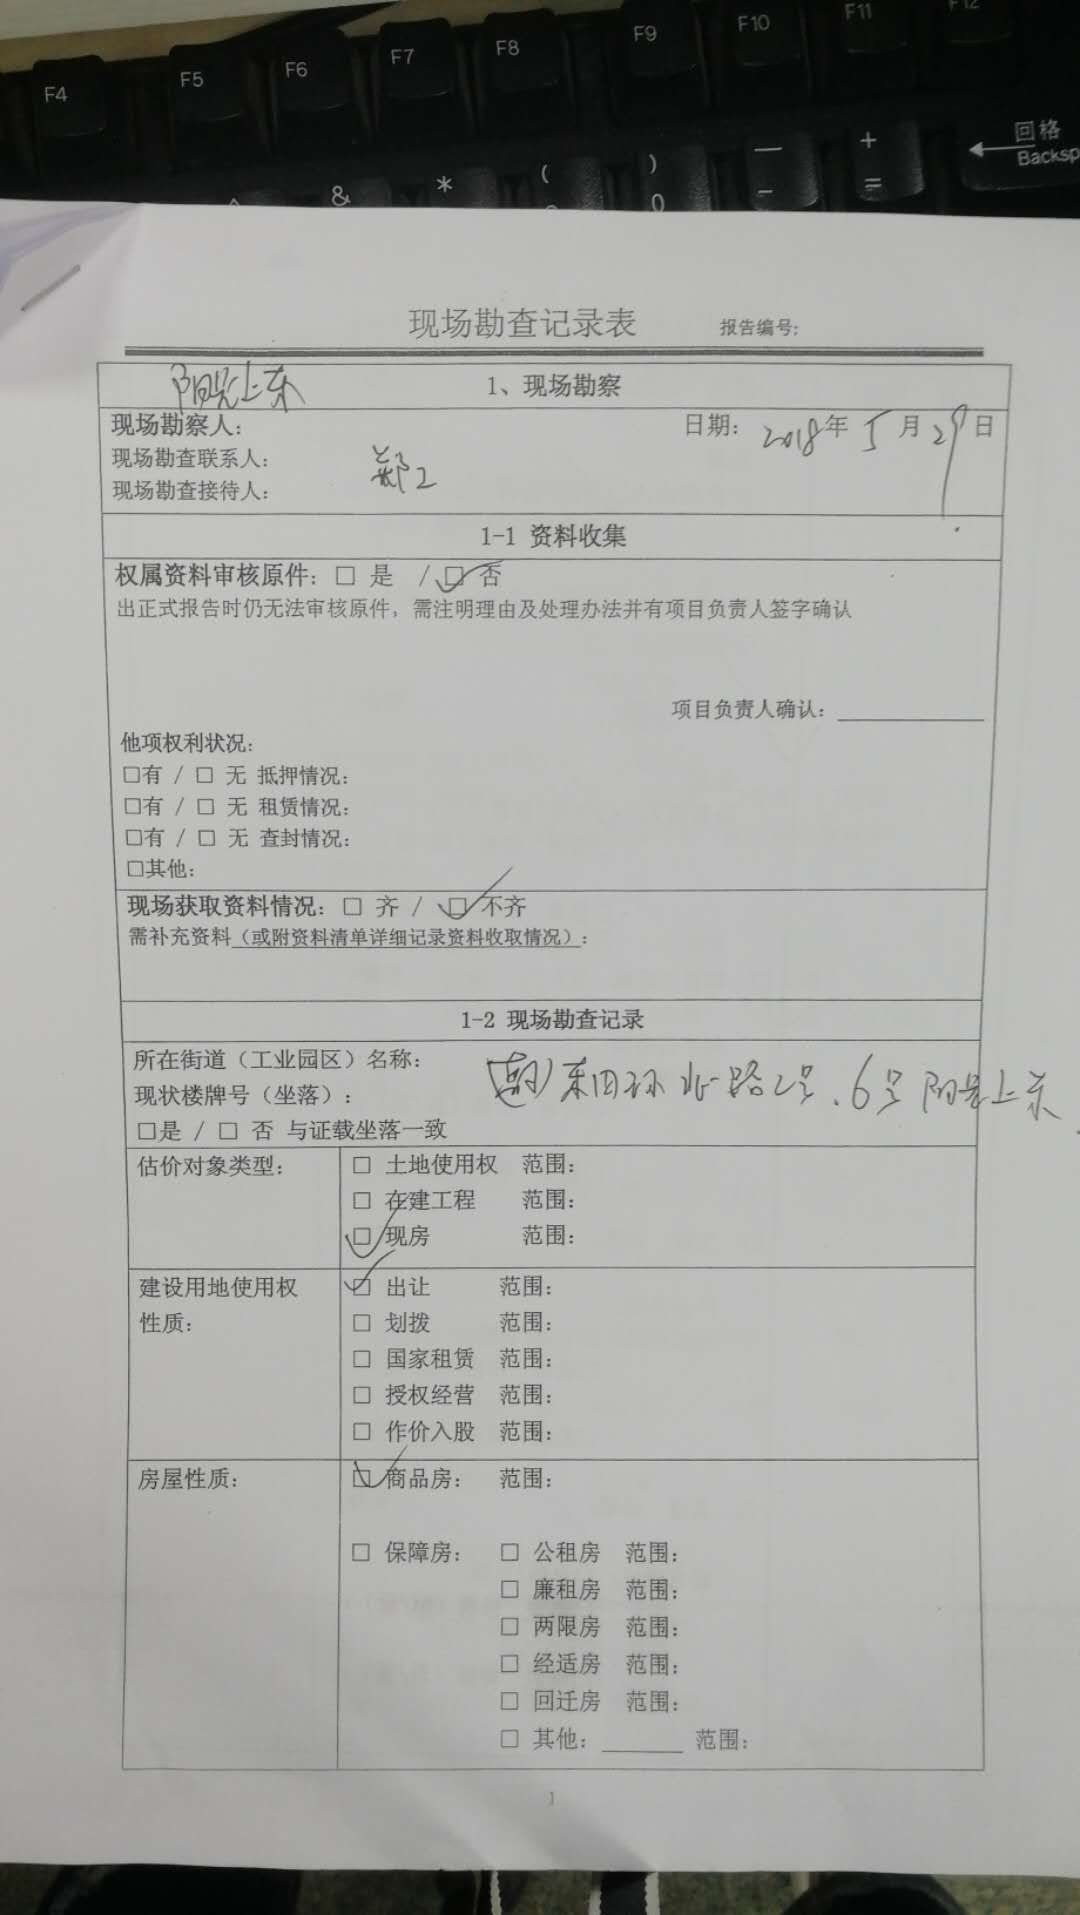 F4 F5 F6 F7 F8 F9 F10 F11 F12
& * ( ) — +
0 - = 回格
Backsp
现场勘查记录表 报告编号:
阳光上东 1、现场勘察
现场勘察人: 日期: 2018年 5 月 29 日
现场勘查联系人:
现场勘查接待人: 郑工
1-1 资料收集
权属资料审核原件: □ 是 / ☑ 否
出正式报告时仍无法审核原件, 需注明理由及处理办法并有项目负责人签字确认
项目负责人确认:
他项权利状况:
□有 / □ 无 抵押情况:
□有 / □ 无 租赁情况:
□有 / □ 无 查封情况:
□其他:
现场获取资料情况: □ 齐 / ☑ 不齐
需补充资料(或附资料清单详细记录资料收取情况):
1-2 现场勘查记录
所在街道(工业园区)名称:
现状楼牌号(坐落): 东四环北路2号、6号阳光上东
□是 / □ 否 与证载坐落一致
估价对象类型: □ 土地使用权 范围:
□ 在建工程 范围:
☑ 现房 范围:
建设用地使用权 ☑ 出让 范围:
性质: □ 划拨 范围:
□ 国家租赁 范围:
□ 授权经营 范围:
□ 作价入股 范围:
房屋性质: ☑ 商品房: 范围:
□ 保障房: □ 公租房 范围:
□ 廉租房 范围:
□ 两限房 范围:
□ 经适房 范围:
□ 回迁房 范围:
□ 其他: 范围:
1